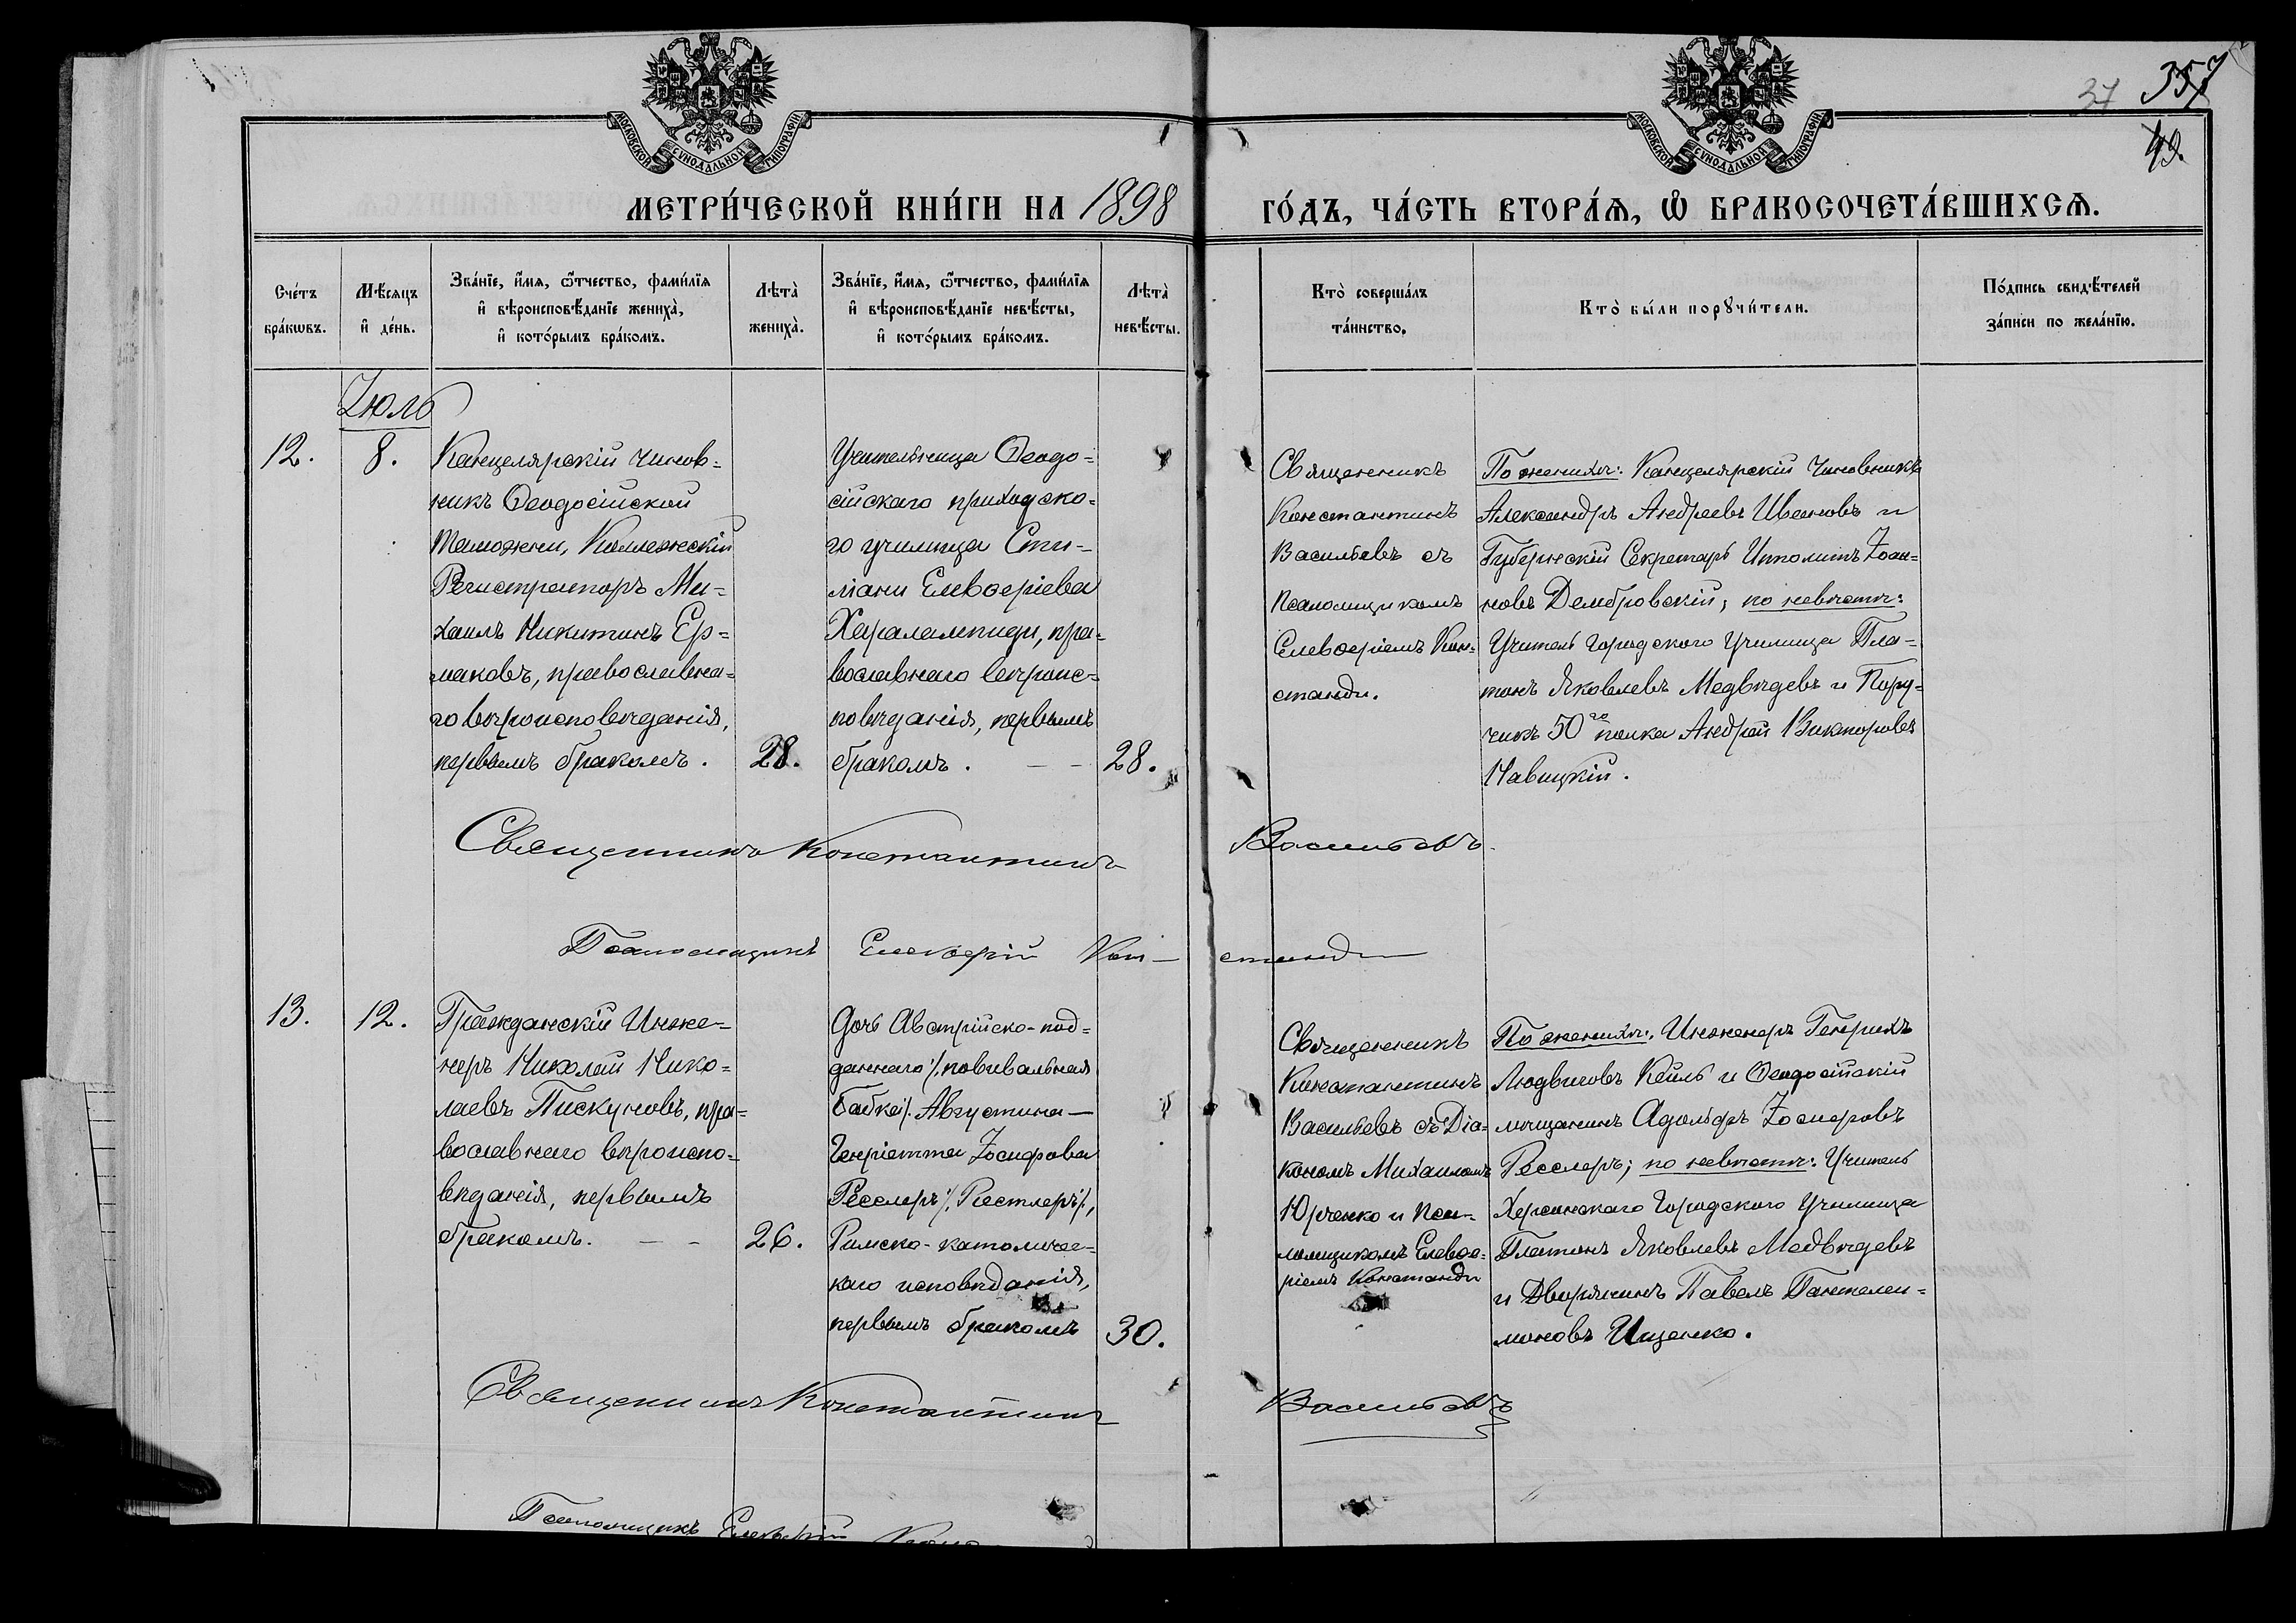 МОСКОВСКОЙ СѴНОДАЛЬНОЙ ТИПОГРАФІИ
МОСКОВСКОЙ СѴНОДАЛЬНОЙ ТИПОГРАФІИ
37 357
49.
МЕТРИ́ЧЕСКОЙ КНИ́ГИ НА 1898 ГО́ДЪ, ЧА́СТЬ ВТОРА́Ѧ, Ѡ҆ БРАКОСОЧЕТА́ВШИХСѦ.
Сче́тъ
бра́кѡвъ.
Мѣ́сяцъ
и҆ де́нь.
Зва́нїе, и҆́мя, ѻ҆́тчество, фами́лїя
и҆ вѣроисповѣ́данїе жениха̀,
и҆ кото́рымъ бра́комъ.
Лѣта̀
жениха̀.
Зва́нїе, и҆́мя, ѻ҆́тчество, фами́лїя
и҆ вѣроисповѣ́данїе невѣ́сты,
и҆ кото́рымъ бра́комъ.
Лѣта̀
невѣ́сты.
Кто̀ соверша́лъ
та́инство.
Кто̀ бы́ли порꙋчи́тели.
По́дпись свидѣ́телей
за́писи по жела́нїю.
Іюль
12.
8.
Канцелярскій чинов-
никъ Ѳеодосійской
Таможни, Коллежскій
Регистраторъ Ми-
хаилъ Никитинъ Ер-
маковъ, православна-
го вѣроисповѣданія,
первымъ бракомъ.
28.
Учительница Ѳеодо-
сійскаго приходско-
го училища Сти-
ліани Елевѳеріева
Хараламписи, пра-
вославнаго вѣроис-
повѣданія, первымъ
бракомъ. — —
28.
Священникъ
Константинъ
Васильевъ съ
псаломщикомъ
Елевѳеріемъ Кон-
станди.
По женихѣ: Канцелярскій Чиновникъ
Александръ Андреевъ Ивановъ и
Губернскій Секретарь Иполитъ Іоан-
новъ Домбровскій; по невѣстѣ:
Учитель Городского Училища Пла-
тонъ Яковлевъ Медвѣдевъ и Пору-
чикъ 50го полка Андрей Викторовъ
Навицкій.
Священникъ Константинъ Васильевъ.
Псаломщикъ Елевѳерій Кон-станди
13.
12.
Гражданскій Инже-
неръ Николай Нико-
лаевъ Пискуновъ, пра-
вославнаго вѣроиспо-
вѣданія, первымъ
бракомъ. — —
26.
Дочь Австрійско-под-
даннаго /.повивальная
бабка/. Августина—
Генріетта Іосифова
Ресслеръ /.Рестлеръ/.,
Римско-католичес-
каго исповѣданія,
первымъ бракомъ
30.
Священникъ
Константинъ
Васильевъ съ Діа-
кономъ Михаиломъ
Юрченко и Пса-
ломщикомъ Елевѳе-
ріемъ Констанди
По женихѣ: Инженеръ Генрихъ
Людвиговъ Кейль и Ѳеодосійскій
мѣщанинъ Адольфъ Іосифовъ
Ресслеръ; по невѣстѣ: Учитель
Херсонскаго Городского Училища
Платонъ Яковлевъ Медвѣдевъ
и Дворянинъ Павелъ Пантелеи-
моновъ Ищенко.
Священникъ Константинъ Васильевъ
Псаломщикъ Елевѳерій